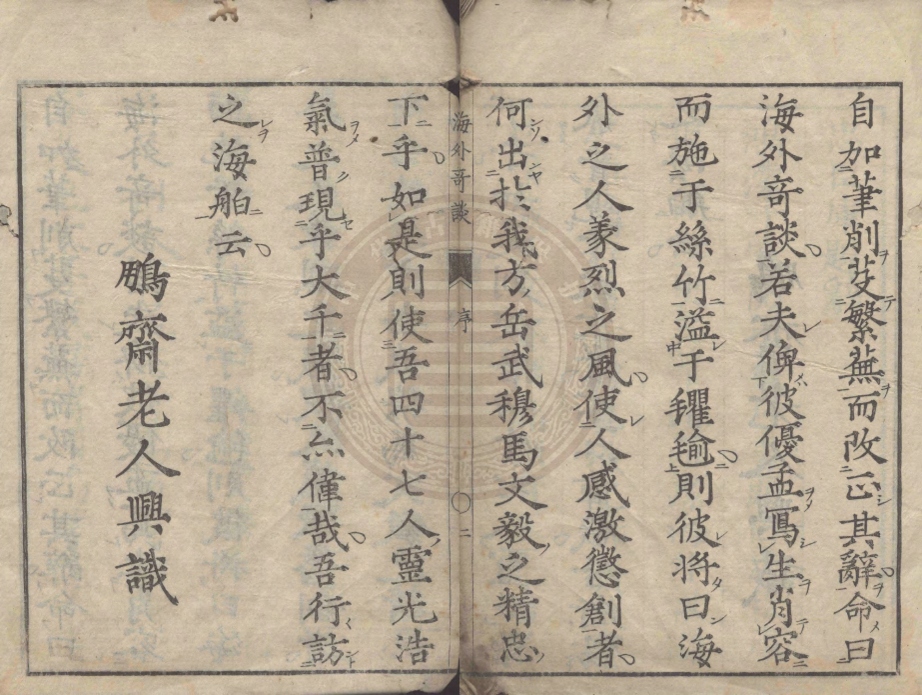 自加筆削芟繁蕪而改正其辭命曰
海外奇談若夫俾彼優孟寫生肖容
而施于絲竹溢于氍毹則彼将曰海
外之人義烈之風使人感激懲創者
何出於我方岳武穆馬文毅之精忠
海外奇談
序
二
下乎如是則使吾四十七人靈光浩
氣普現乎大千者不亦偉哉吾行訪
之海舶云
鵬齋老人興識